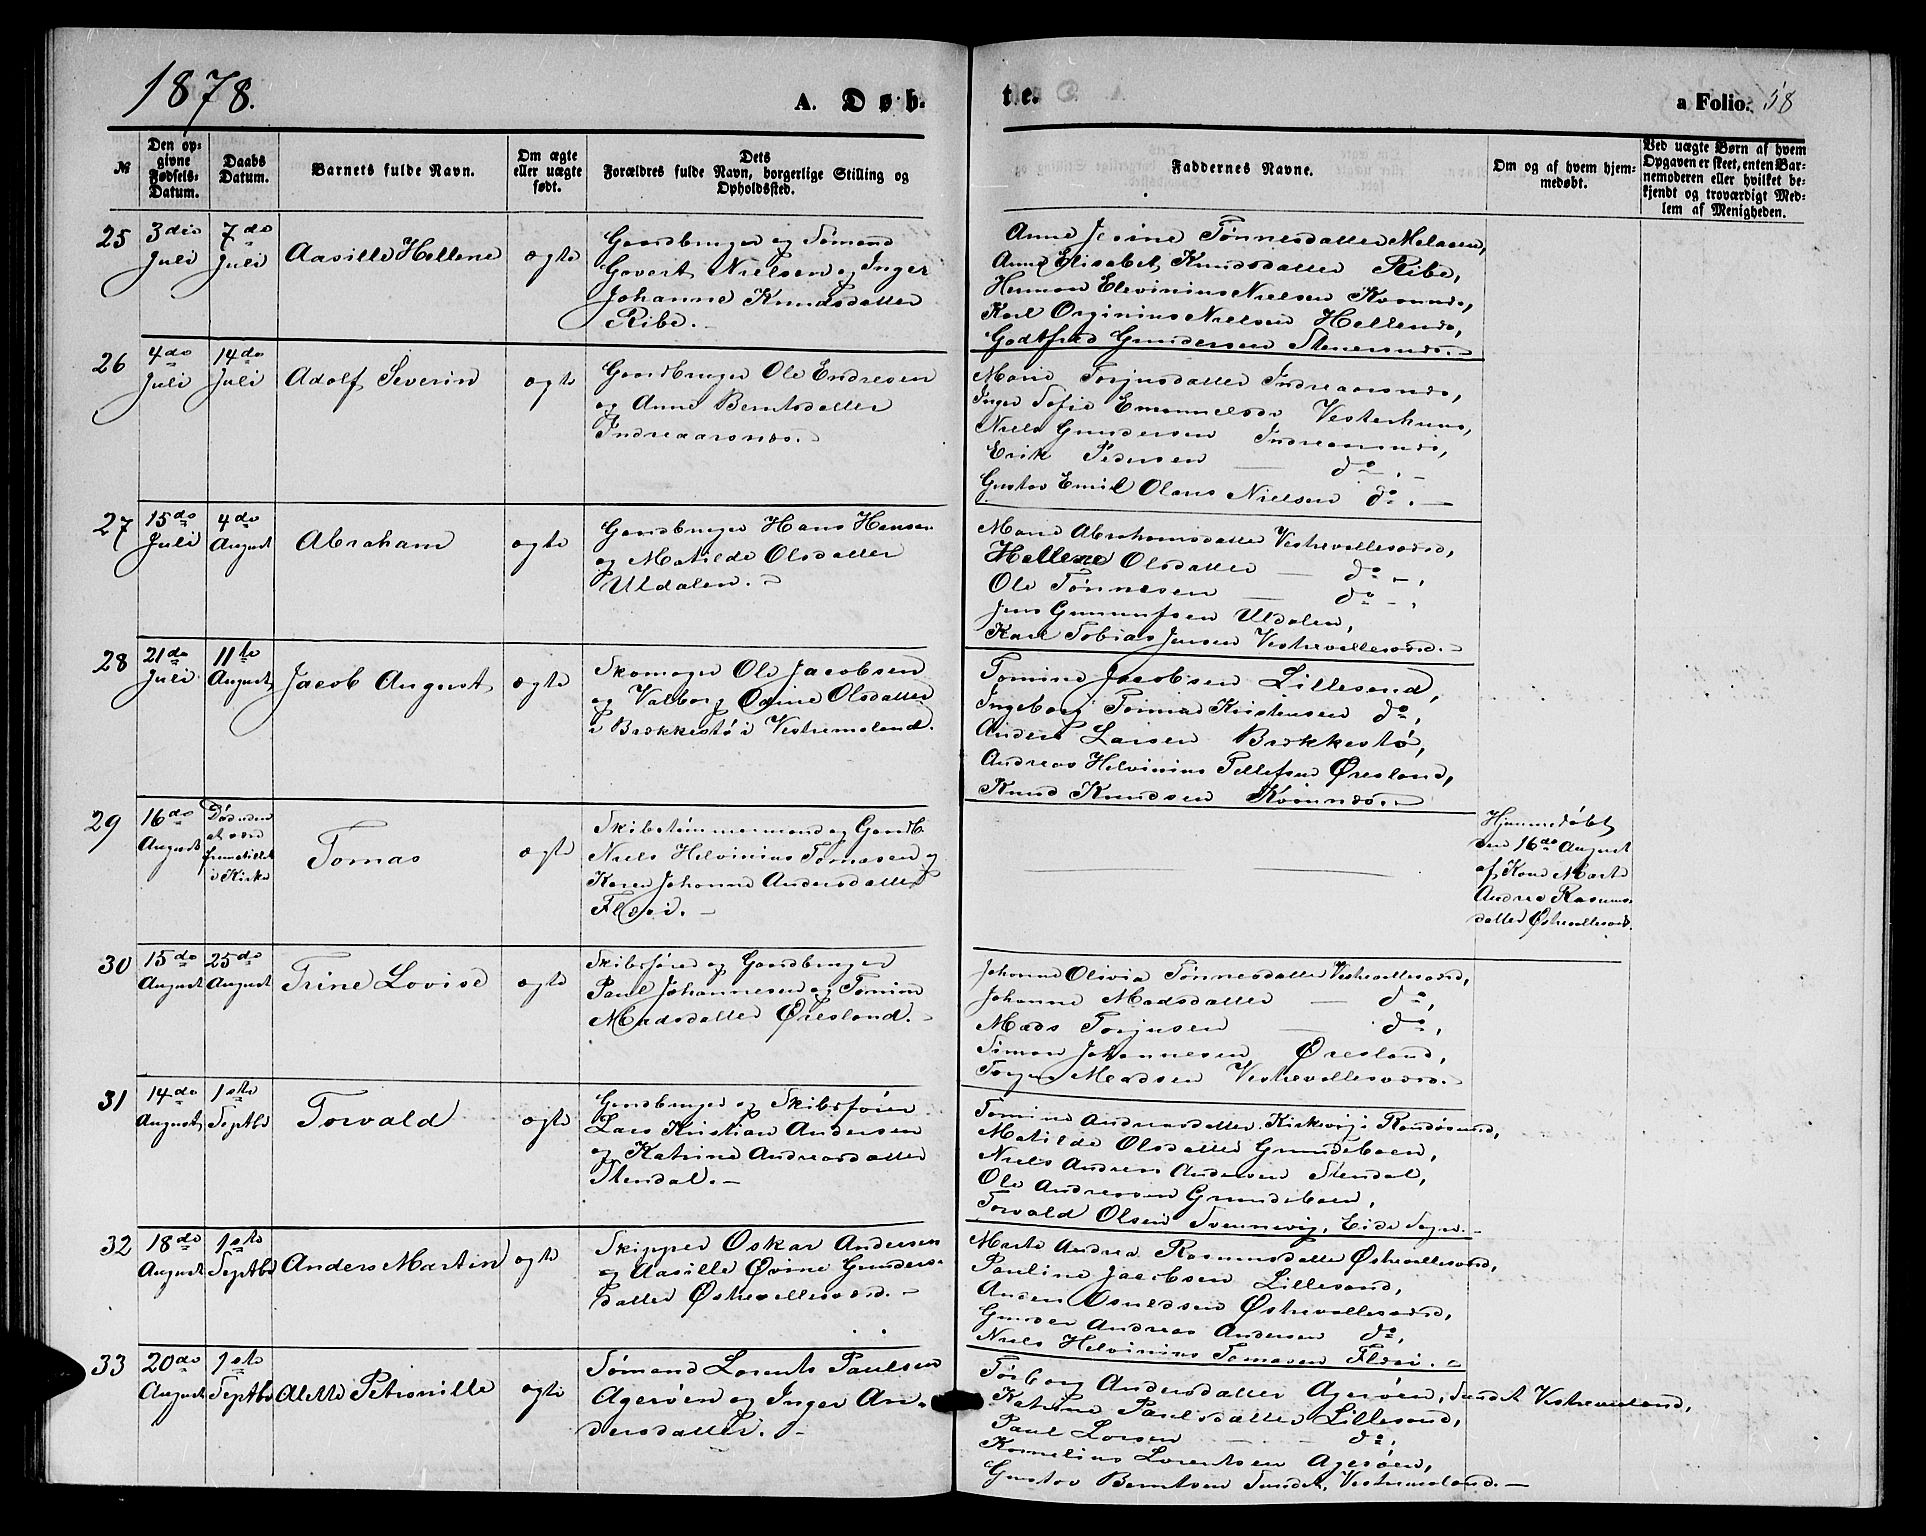 1878.
A. Døb-
te.
a Folio. 58
№
Den op-
givne
Fødsels-
Datum.
Daabs
Datum.
Barnets fulde Navn.
Om ægte
eller uægte
født.
Dets
Forældres fulde Navn, borgerlige Stilling og
Opholdssted.
Faddernes Navne.
Om og af hvem hjem-
medøbt.
Ved uægte Børn af hvem
Opgaven er skeet, enten Bar-
nemoderen eller hvilket be-
kjendt og troværdigt Med-
lem af Menigheden.
25
3die
Juli
7de
Juli
Aasille Hellene
ægte
Gaardbruger og Sømand
Govert Nielsen og Inger
Johanne Knudsdatter
Ribe.
Anne Jesine Tønnesdatter
Anne Elisabet Knudsdatter Ribe,
Herman Elevinius Nielsen
Karl Nielsen
Godtfred Gundersen
26
4de
Juli
14de
Juli
Adolf Severin
ægte
Gaardbruger Ole Endresen
og Anne Berntsdatter
Indreaarsnes.
Marie Torjusdatter Indreaarsnes,
Inger Sofie Emanuelsdr Vesterhuus,
Niels Gundersen Indreaarsnes,
Erik Pedersen — do,
Gustav Emil Olaus Nielsen do.
27
15de
Juli
4de
August
Abraham
ægte
Gaardbruger Hans Hansen
og Matilde Olsdatter
Uldalen.
Maria Abrahamsdatter Vestrevallesværd,
Hellene Olsdatter — do,
Ole Tønnesen — do,
Jens Gunnufsen Uldalen,
Karl Tobias Jensen Vestrevallesværd.
28
21de
Juli
11te
August
Jacob August
ægte
Skomager Ole Jacobsen
og Valborg Olsdatter
i Brækkestø i Vestremoland.
Tomine Jacobsen Lillesand,
Ingeborg Tomine Kristensen do,
Anders Larsen Brækkestø,
Andreas Helvinius Tellefsen Øresland,
Knud Knudsen
29
16de
August
Død uden
at være
fremstillet
i Kirke
Tomas
ægte
Skibstømmermand og Gaardb.
Niels Helvinius Tomasen og
Karen Johanne Andersdatter
Flæsi.
Hjemmedøbt
den 16de August
af Kone Marte
Andrea Rasmus-
datter Østrevallesværd.
30
15de
August
25de
August
Trine Lovise
ægte
Skibsfører og Gaardbruger
Paul Johannesen og Tomine
Madsdatter Øresland.
Johanne Olivia Tønnesdatter Vestrevallesværd,
Johanne Madsdatter — do,
Mads Torjusen — do,
Simon Johannesen Øresland,
Torjus Madsen Vestrevallesværd.
31
14de
August
1ste
Septbr
Torvald
ægte
Gaardbruger og Skibsfører
Lars Kristian Andersen
og Katrine Andreasdatter
Stendal.
Tomine Andreasdatter Kirkevig i Randøsund,
Matilde Olsdatter Grundeboen,
Niels Andreas Andersen Stendal,
Ole Andreassen Grundeboen,
Torvald Olsen Svennevig, Eide Sogn.
32
18de
August
1ste
Septbr
Anders Martin
ægte
Skipper Oskar Andersen
og Aasille Gunders-
datter Østrevallesværd.
Marte Andrea Rasmusdatter Østrevallesværd,
Pauline Jacobsen Lillesand,
Anders Osuldsen Østrevallesværd,
Gunder Andreas Andersen do,
Niels Helvinius Tomasen Flæsi.
33
20de
August
1ste
Septbr
Alette Petronille
ægte
Sømand Lorents Paulsen
Agerøen og Inger An-
dersdatter.
Torborg Andersdatter Agerøen, Sundet Vestremoland,
Katrine Paulsdatter Lillesand,
Paul Larsen — do,
Kornelius Lorentsen Agerøen,
Gustav Berntsen Sundet, Vestremoland.